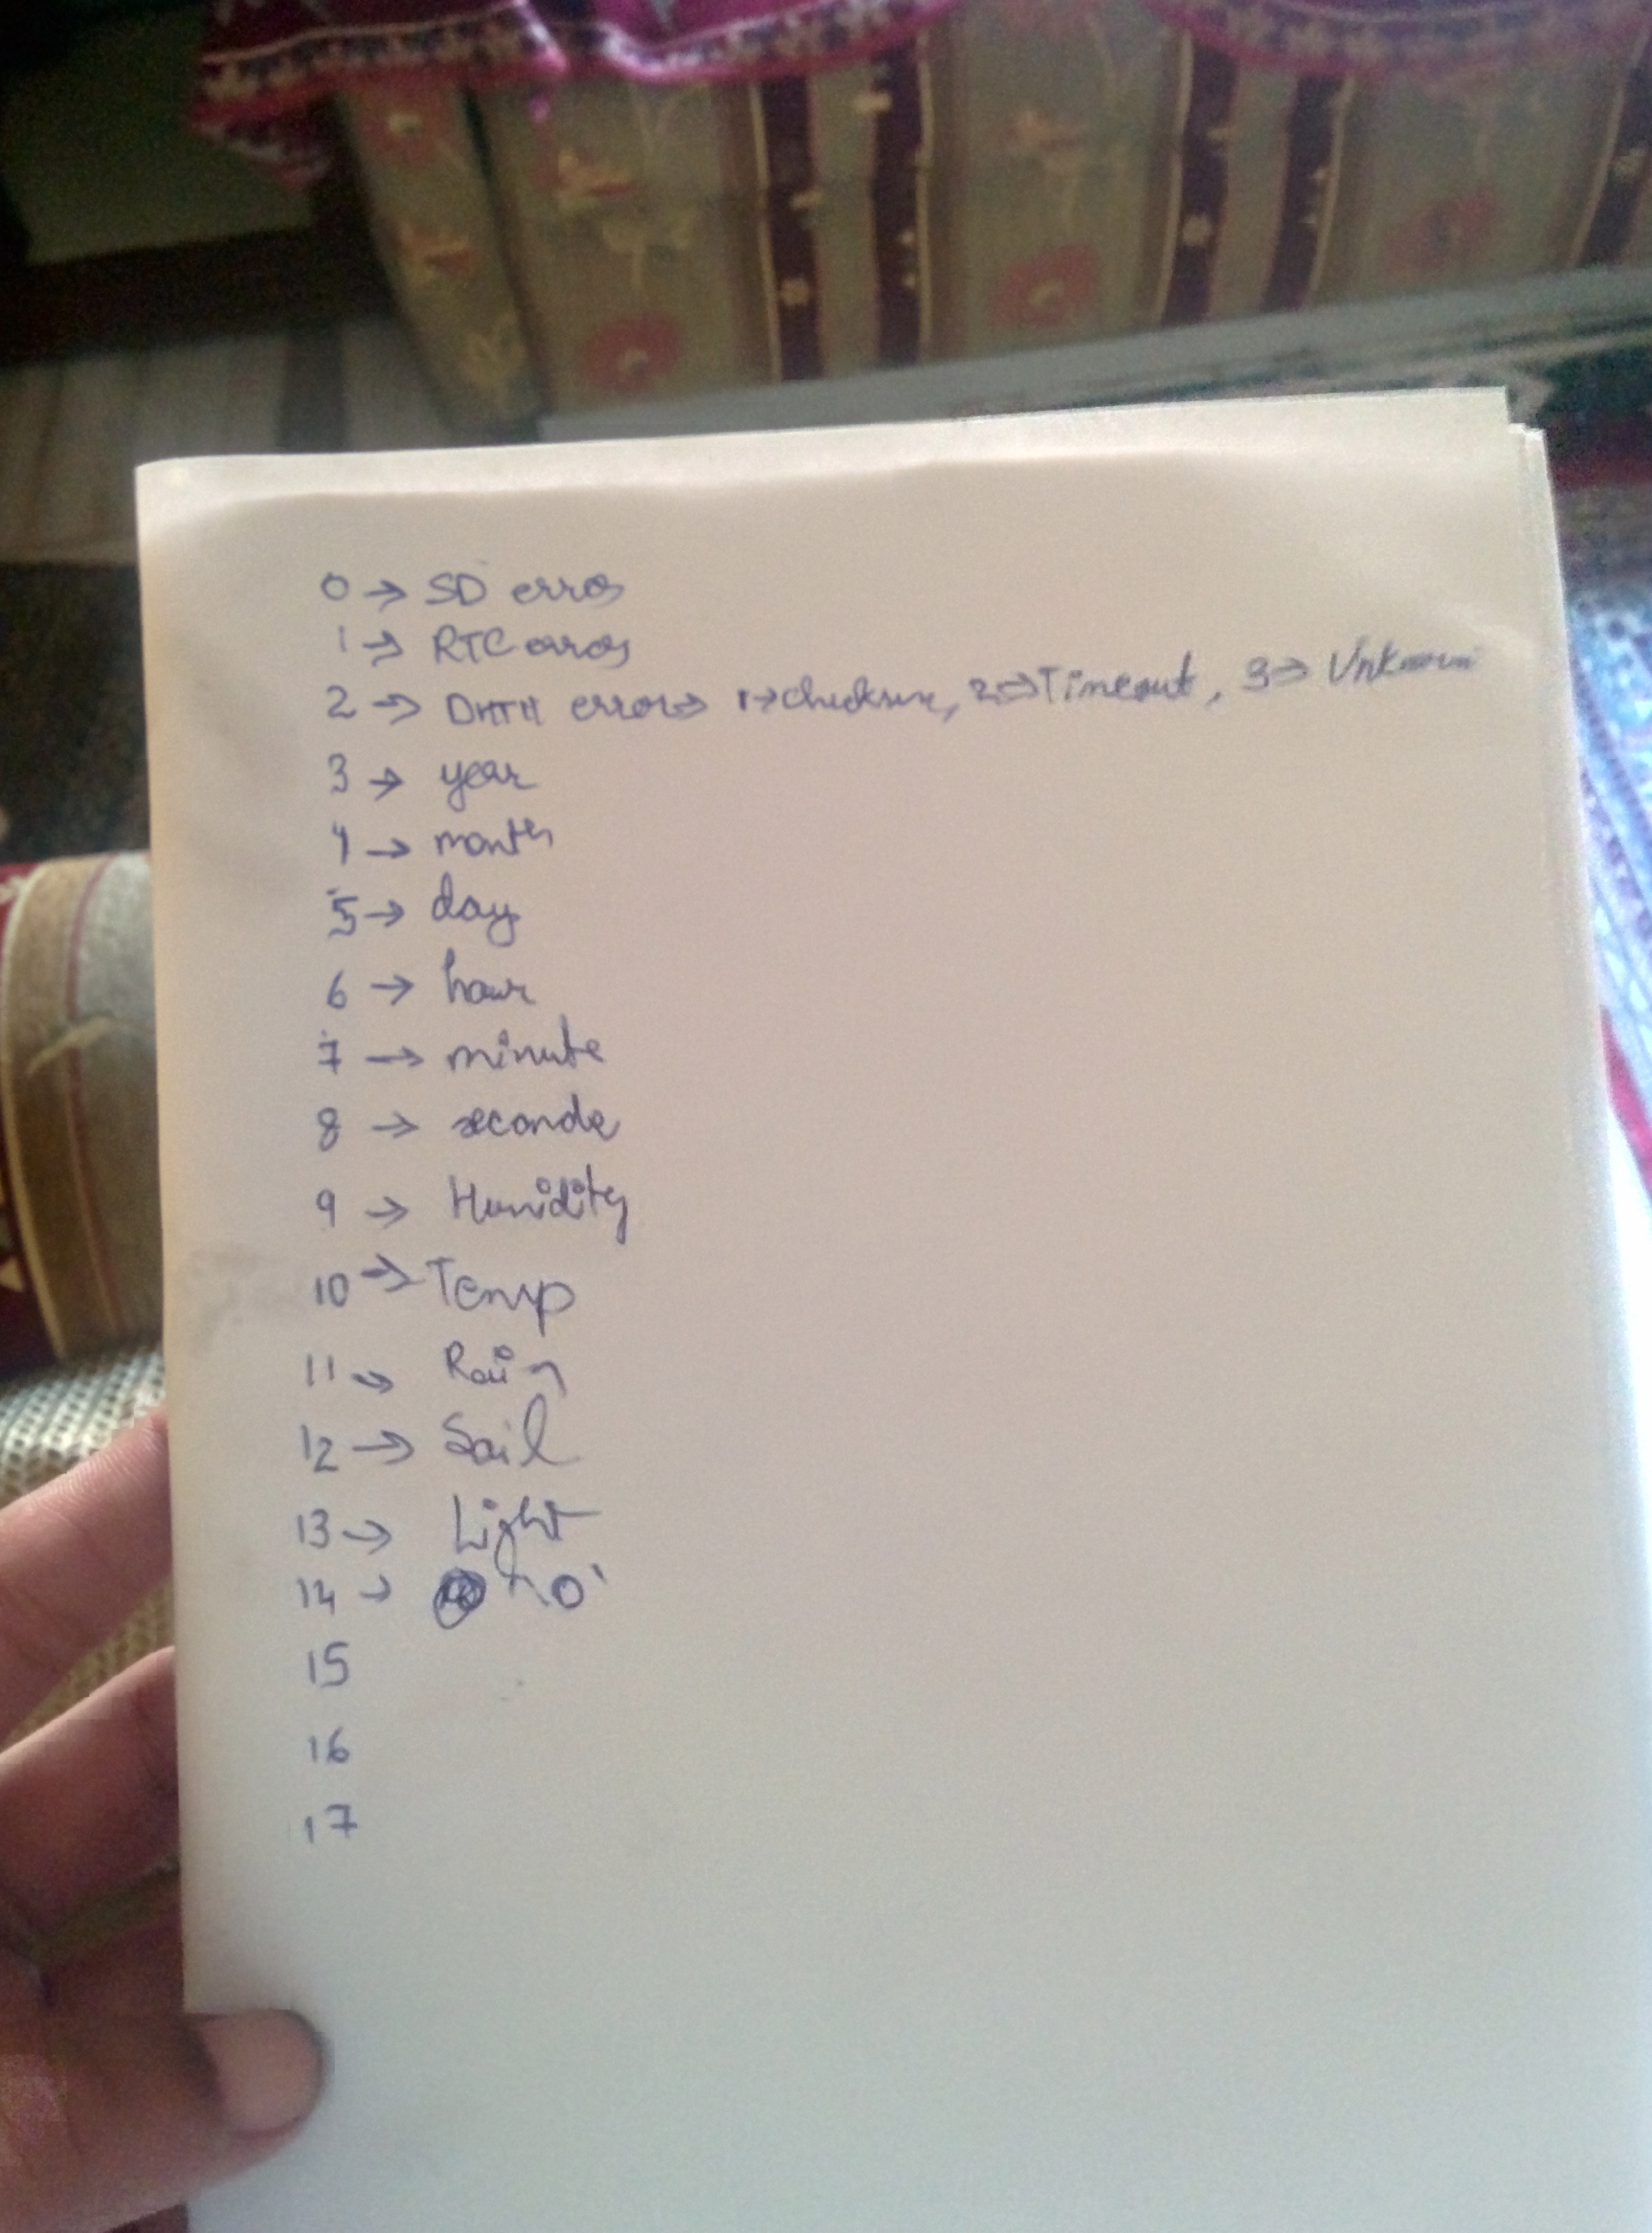 0 → SD error
1 → RTC error
2 → DHT11 error → 1 → checksum, 2 → Timeout, 3 → Unknown
3 → year
4 → month
5 → day
6 → hour
7 → minute
8 → seconde
9 → Humidity
10 → Temp
11 → Rain
12 → Soil
13 → Light
14 →
15
16
17